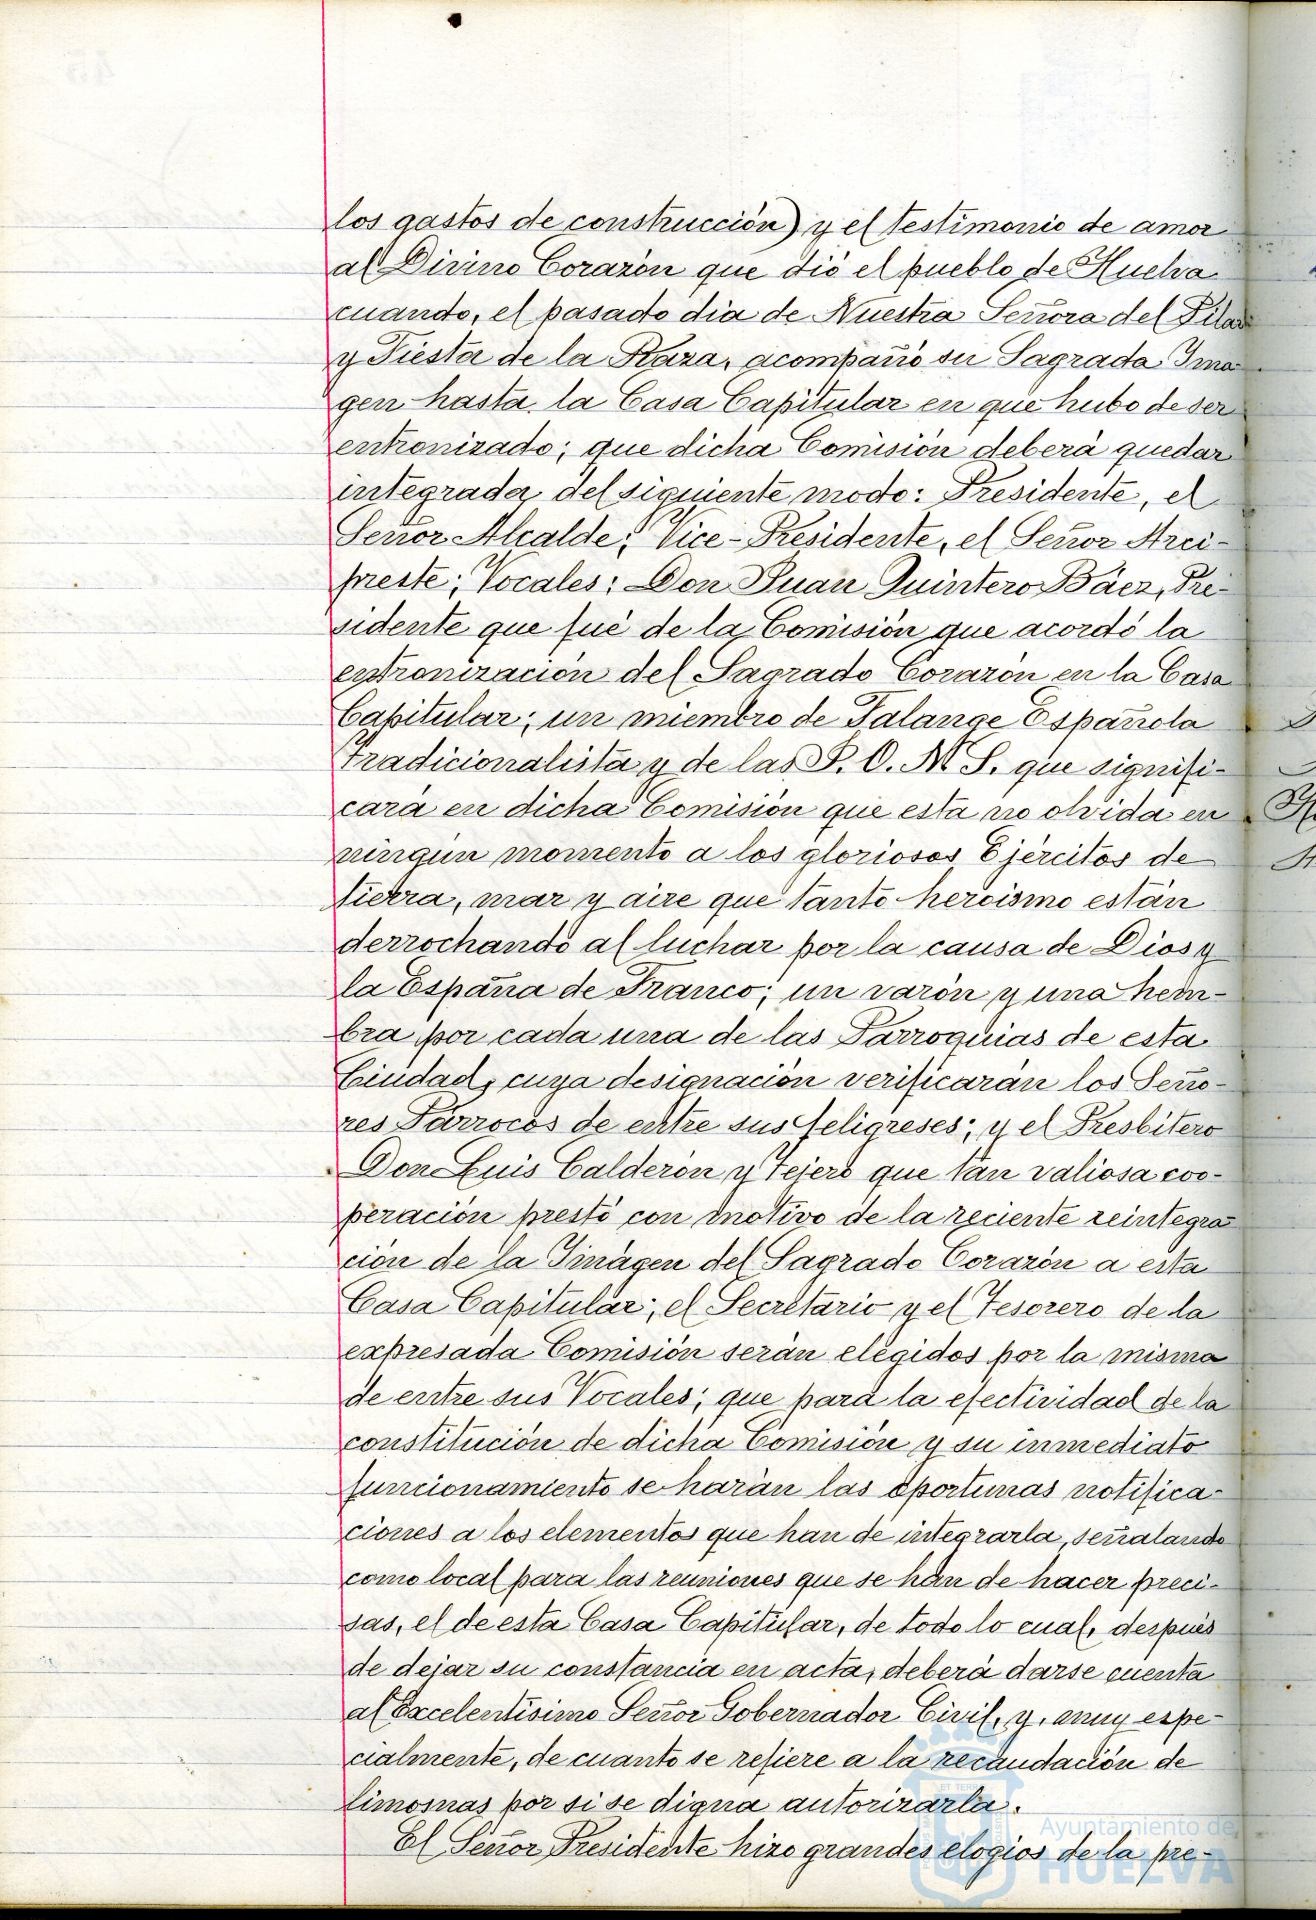 los gastos de construcción) y el testimonio de amor
al Divino Corazón que dió el pueblo de Huelva
cuando, el pasado dia de Nuestra Señora del Pilar
y Fiesta de la Raza, acompañó su Sagrada Ima-
gen hasta la Casa Capitular en que hubo de ser
entronizado; que dicha Comisión deberá quedar
integrada del siguiente modo: Presidente, el
Señor Alcalde; Vice-Presidente, el Señor Arci-
preste; Vocales: Don Juan Quintero Báez, Pre-
sidente que fué de la Comisión que acordó la
entronización del Sagrado Corazón en la Casa
Capitular; un miembro de Falange Española
Tradicionalista y de las J. O. N. S. que signifi-
cará en dicha Comisión que esta no olvida en
ningún momento a los gloriosos Ejércitos de
tierra, mar y aire que tanto heroismo están
derrochando al luchar por la causa de Dios y
la España de Franco; un varón y una hem-
bra por cada una de las Parroquias de esta
Ciudad, cuya designación verificarán los Seño-
res Párrocos de entre sus feligreses; y el Presbitero
Don Luis Calderón y Tejero que tan valiosa coo-
peración prestó con motivo de la reciente reintegra-
ción de la Imágen del Sagrado Corazón a esta
Casa Capitular; el Secretario y el Tesorero de la
expresada Comisión serán elegidos por la misma
de entre sus Vocales; que para la efectividad de la
constitución de dicha Comisión y su inmediato
funcionamiento se harán las oportunas notifica-
ciones a los elementos que han de integrarla, señalando
como local para las reuniones que se han de hacer preci-
sas, el de esta Casa Capitular, de todo lo cual, después
de dejar su constancia en acta, deberá darse cuenta
al Excelentísimo Señor Gobernador Civil, y, muy espe-
cialmente, de cuanto se refiere a la recaudación de
limosnas por si se digna autorizarla.
El Señor Presidente hizo grandes elogios de la pre-
Ayuntamiento de
HUELVA